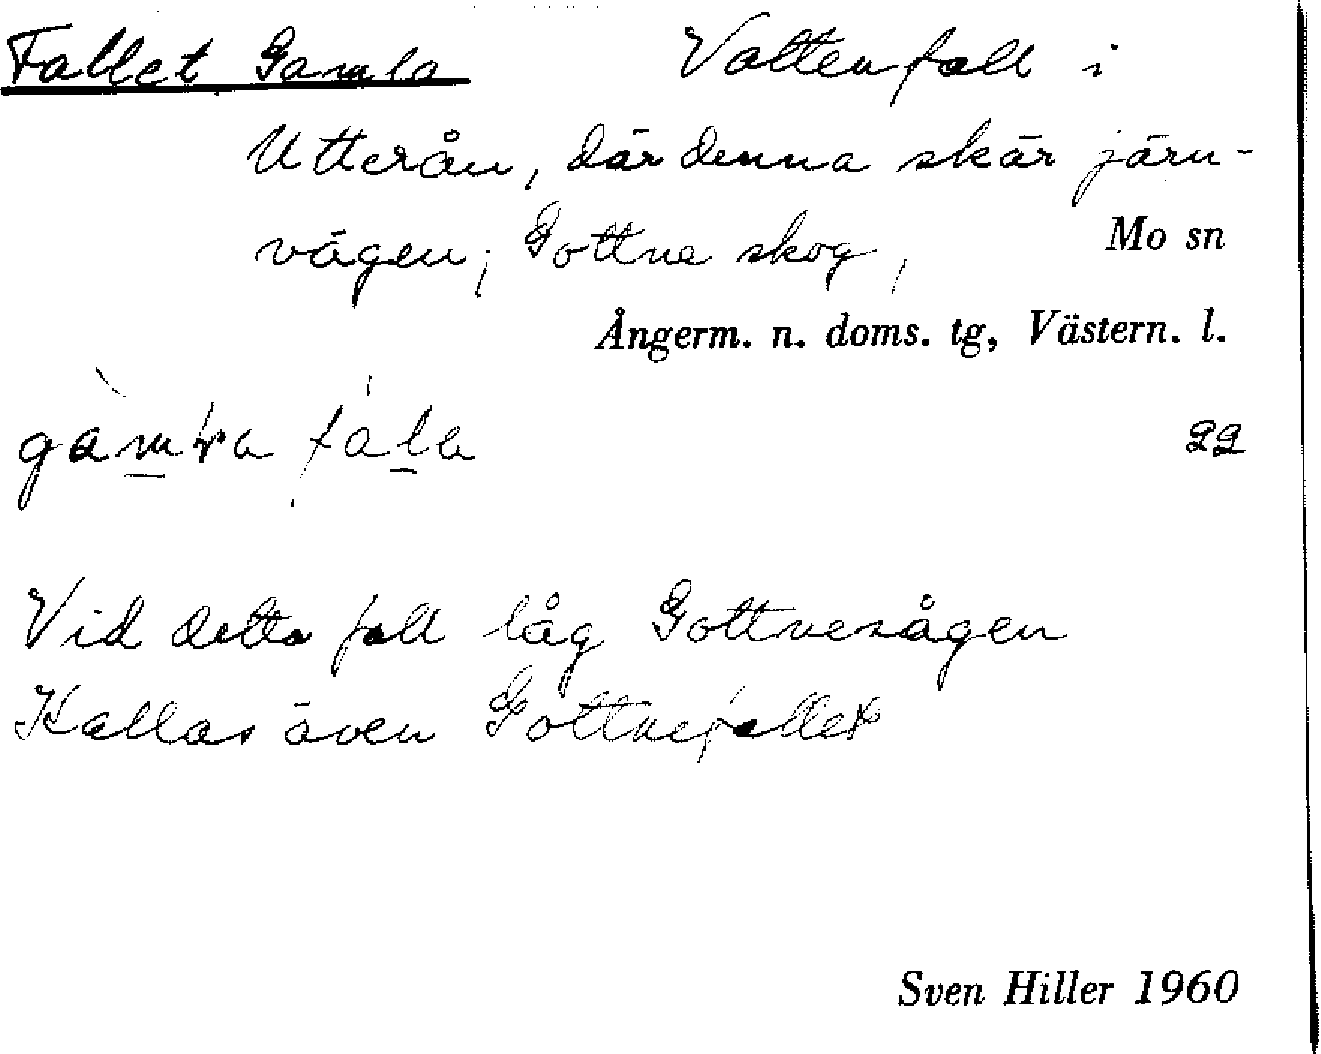 Fallet Gamla Vattenfall i
Utterån, där denna skär järn-
vägen; Gottne skog, Mo sn
Ångerm. n. doms. tg, Västern. l.
22
Vid detta fall låg Gottnesågen
Kallas även Gottnefallet
Sven Hiller 1960